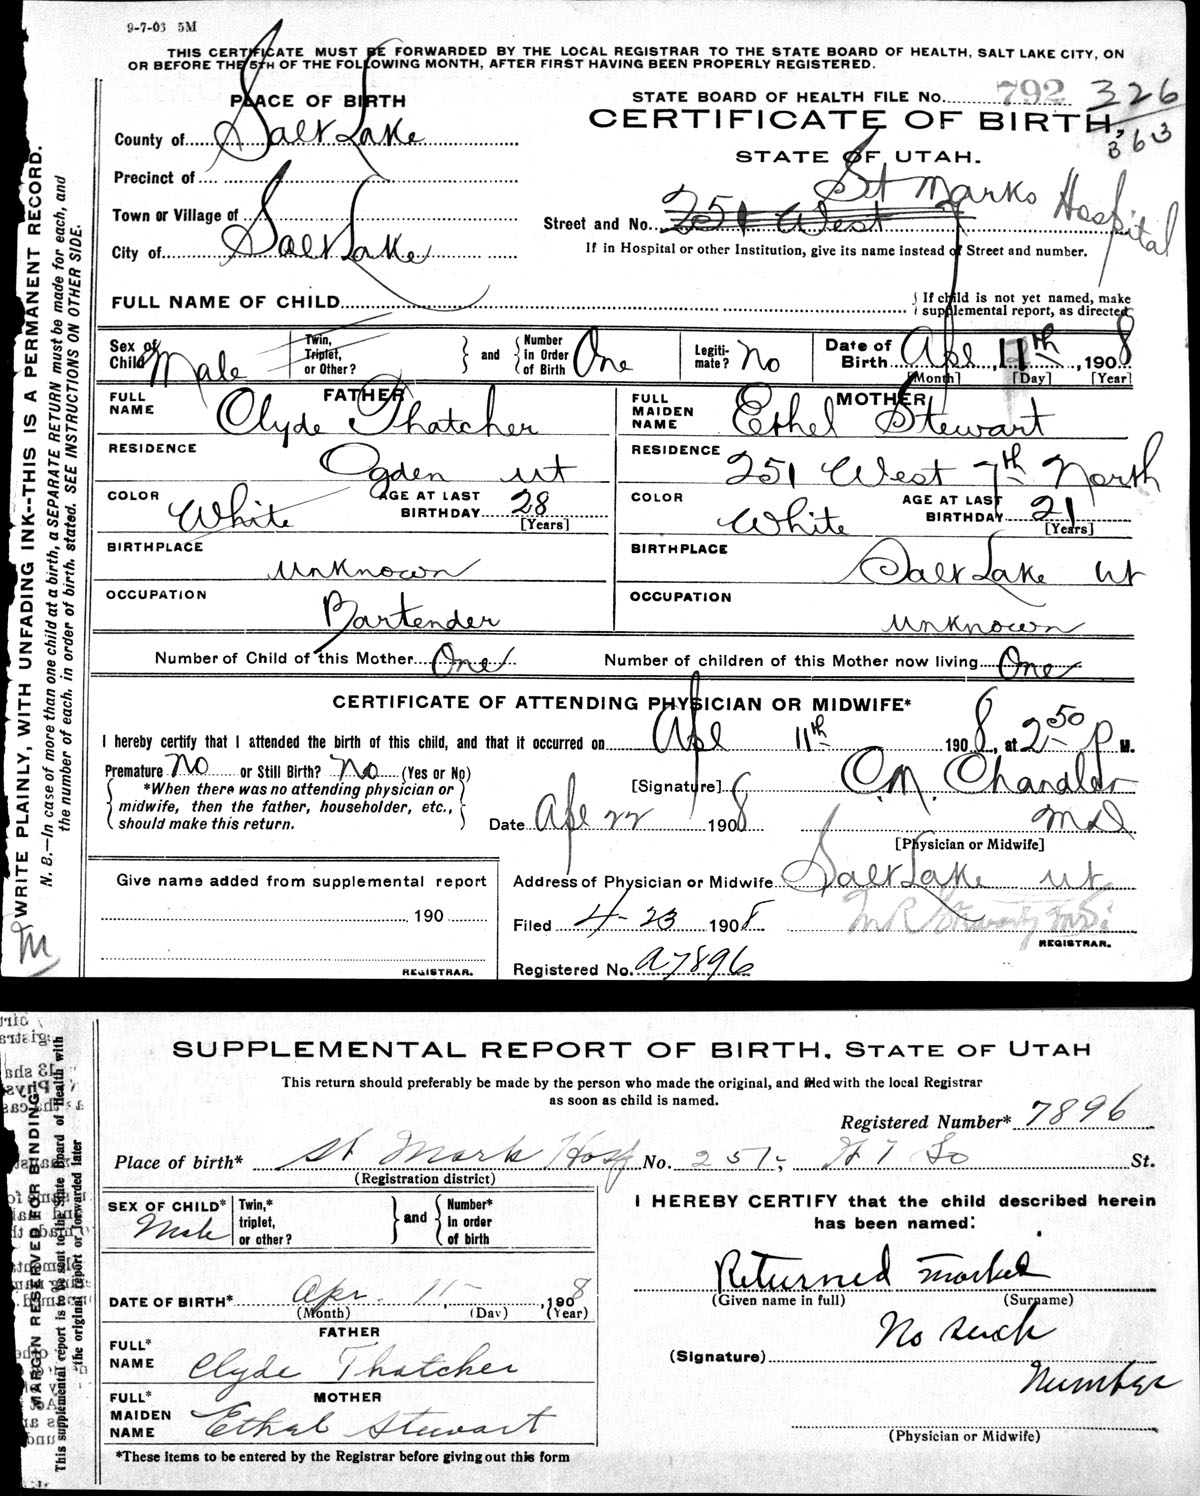 9-7-03 5M
THIS CERTIFICATE MUST BE FORWARDED BY THE LOCAL REGISTRAR TO THE STATE BOARD OF HEALTH, SALT LAKE CITY, ON
OR BEFORE THE 5TH OF THE FOLLOWING MONTH, AFTER FIRST HAVING BEEN PROPERLY REGISTERED.
WRITE PLAINLY, WITH UNFADING INK--THIS IS A PERMANENT RECORD.
N. B.—In case of more than one child at a birth, a SEPARATE RETURN must be made for each, and
the number of each, in order of birth, stated. SEE INSTRUCTIONS ON OTHER SIDE.
M
PLACE OF BIRTH
County of Salt Lake
Precinct of
Town or Village of
City of Salt Lake
STATE BOARD OF HEALTH FILE No. 792 326
363
CERTIFICATE OF BIRTH,
STATE OF UTAH.
St Marks Hospital
Street and No. 251 West
If in Hospital or other Institution, give its name instead of Street and number.
FULL NAME OF CHILD
{If child is not yet named, make
supplemental report, as directed
Sex of Child Male
Twin, Triplet, or Other?
} and { Number in Order of Birth One
Legitimate? No
Date of Birth Apl 11th, 1908
[Month] [Day] [Year]
FATHER
FULL NAME Clyde Thatcher
RESIDENCE Ogden ut
COLOR White AGE AT LAST BIRTHDAY 28 [Years]
BIRTHPLACE unknown
OCCUPATION Bartender
MOTHER
FULL MAIDEN NAME Ethel Stewart
RESIDENCE 251 West 7th North
COLOR White AGE AT LAST BIRTHDAY 21 [Years]
BIRTHPLACE Salt Lake ut
OCCUPATION unknown
Number of Child of this Mother One Number of children of this Mother now living One
CERTIFICATE OF ATTENDING PHYSICIAN OR MIDWIFE*
I hereby certify that I attended the birth of this child, and that it occurred on Apl 11th 1908, at 2 50 P M.
Premature No or Still Birth? No (Yes or No)
*When there was no attending physician or
midwife, then the father, householder, etc.,
should make this return.
[Signature] C. M. Chandler
Date Apl 22 1908 MD
[Physician or Midwife]
Address of Physician or Midwife Salt Lake ut
Filed 4-23 1908
REGISTRAR.
Registered No. A7896
Give name added from supplemental report
190
REGISTRAR.
SUPPLEMENTAL REPORT OF BIRTH, STATE OF UTAH
This return should preferably be made by the person who made the original, and filed with the local Registrar
as soon as child is named.
MARGIN RESERVED FOR BINDING.
This supplemental report is to be sent to the State Board of Health with
the original report or forwarded later
Registered Number* 7896
Place of birth* St Mark Hosp No. 251, W 7 So St.
(Registration district)
SEX OF CHILD* Male
Twin,* triplet, or other?
} and { Number* in order of birth
DATE OF BIRTH* Apr. 11, 1908
(Month) (Day) (Year)
FATHER
FULL* NAME Clyde Thatcher
MOTHER
FULL* MAIDEN NAME Ethel Stewart
*These items to be entered by the Registrar before giving out this form
I HEREBY CERTIFY that the child described herein
has been named:
Returned marked
(Given name in full) (Surname)
No such
(Signature)
Number
(Physician or Midwife)